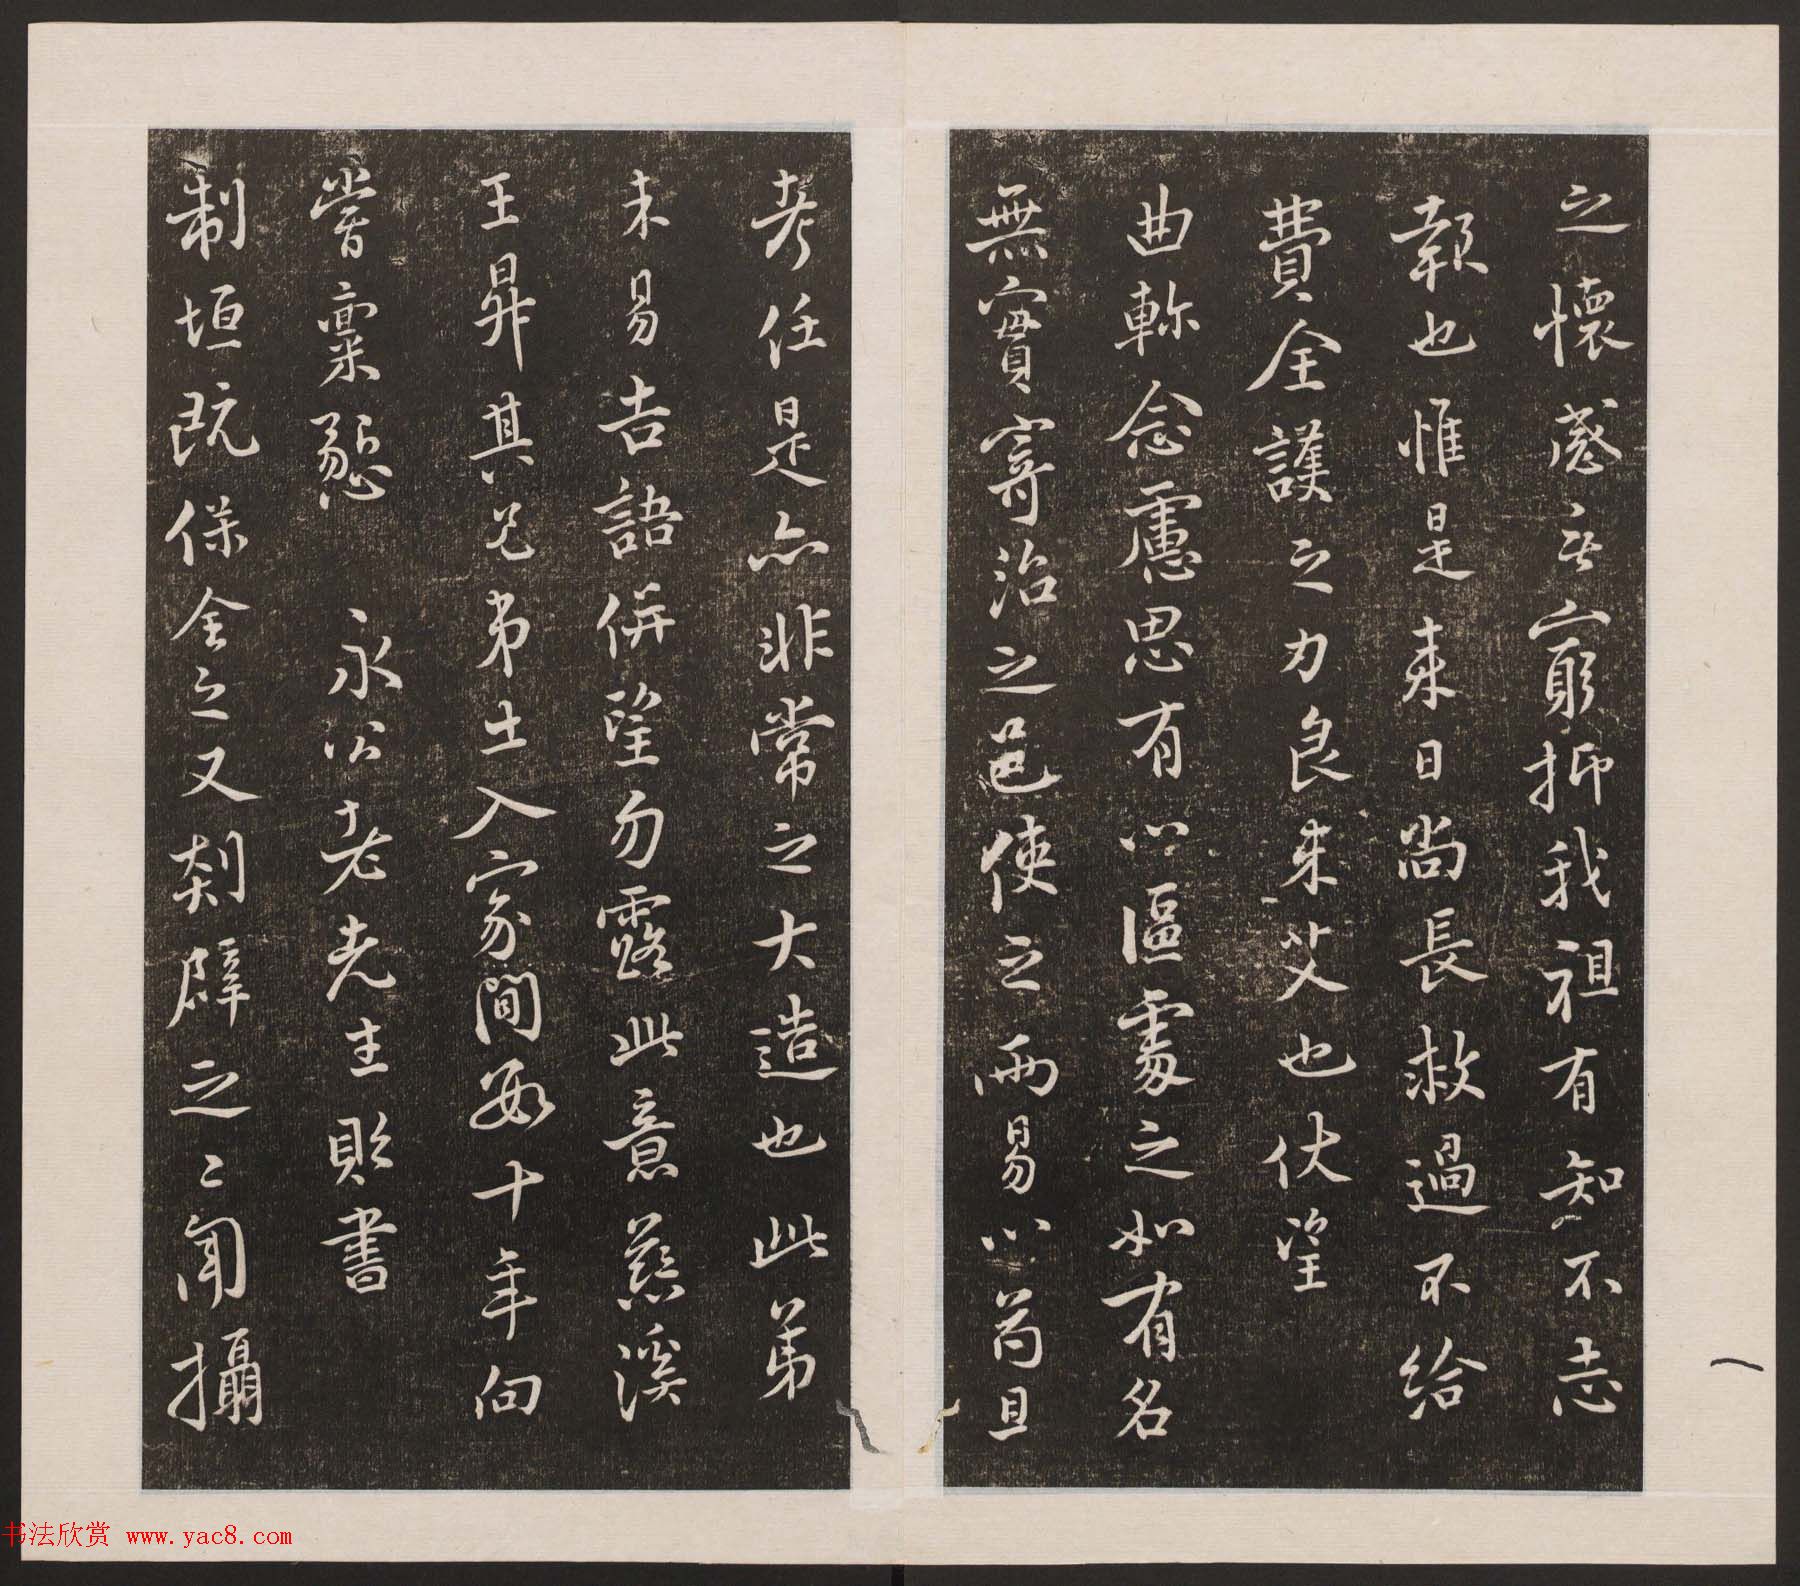 之懷感無窮抑我祖有知不忘
報也惟是来日尚長救過不給
費全護之力良未艾也伏望
曲軫念慮思有以區處之如有名
無實寄治之邑使之兩易以苟且
考任是亦非常之大造也此第
未易告語併望勿露此意慈溪
王昇其兄弟出入家間數十年向
嘗稟懇 永公老先生貽書
制垣既保全之又剡辟之之聞攝
书法欣赏 www.yac8.com